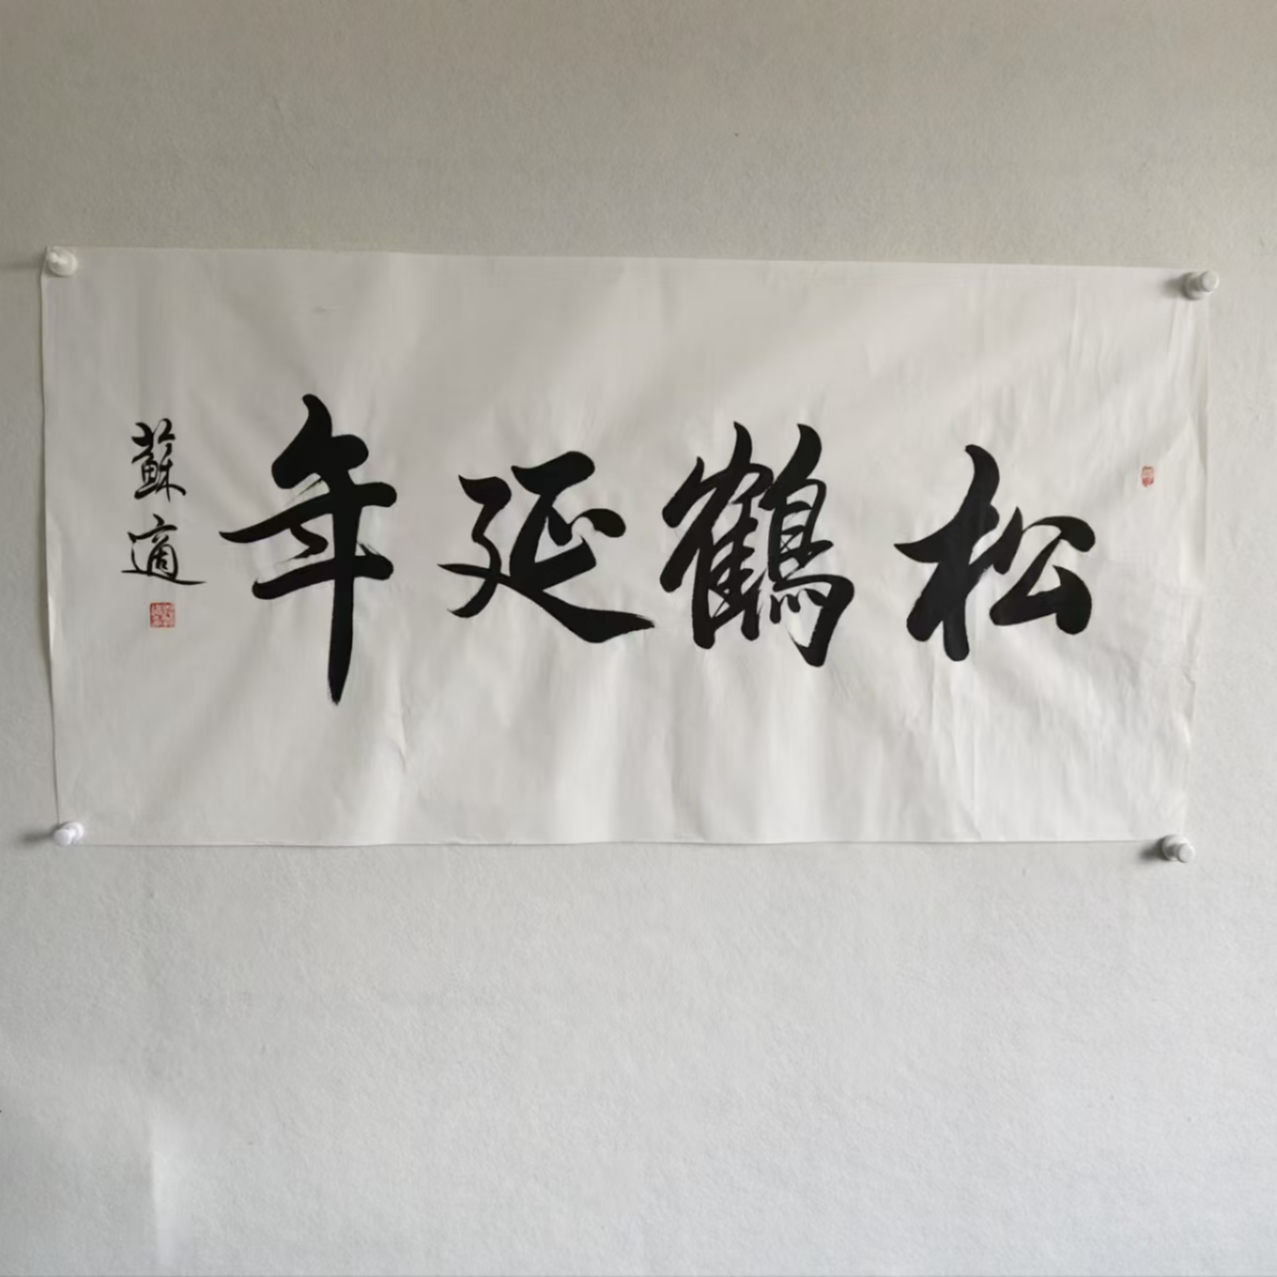 松鶴延年
蘇適